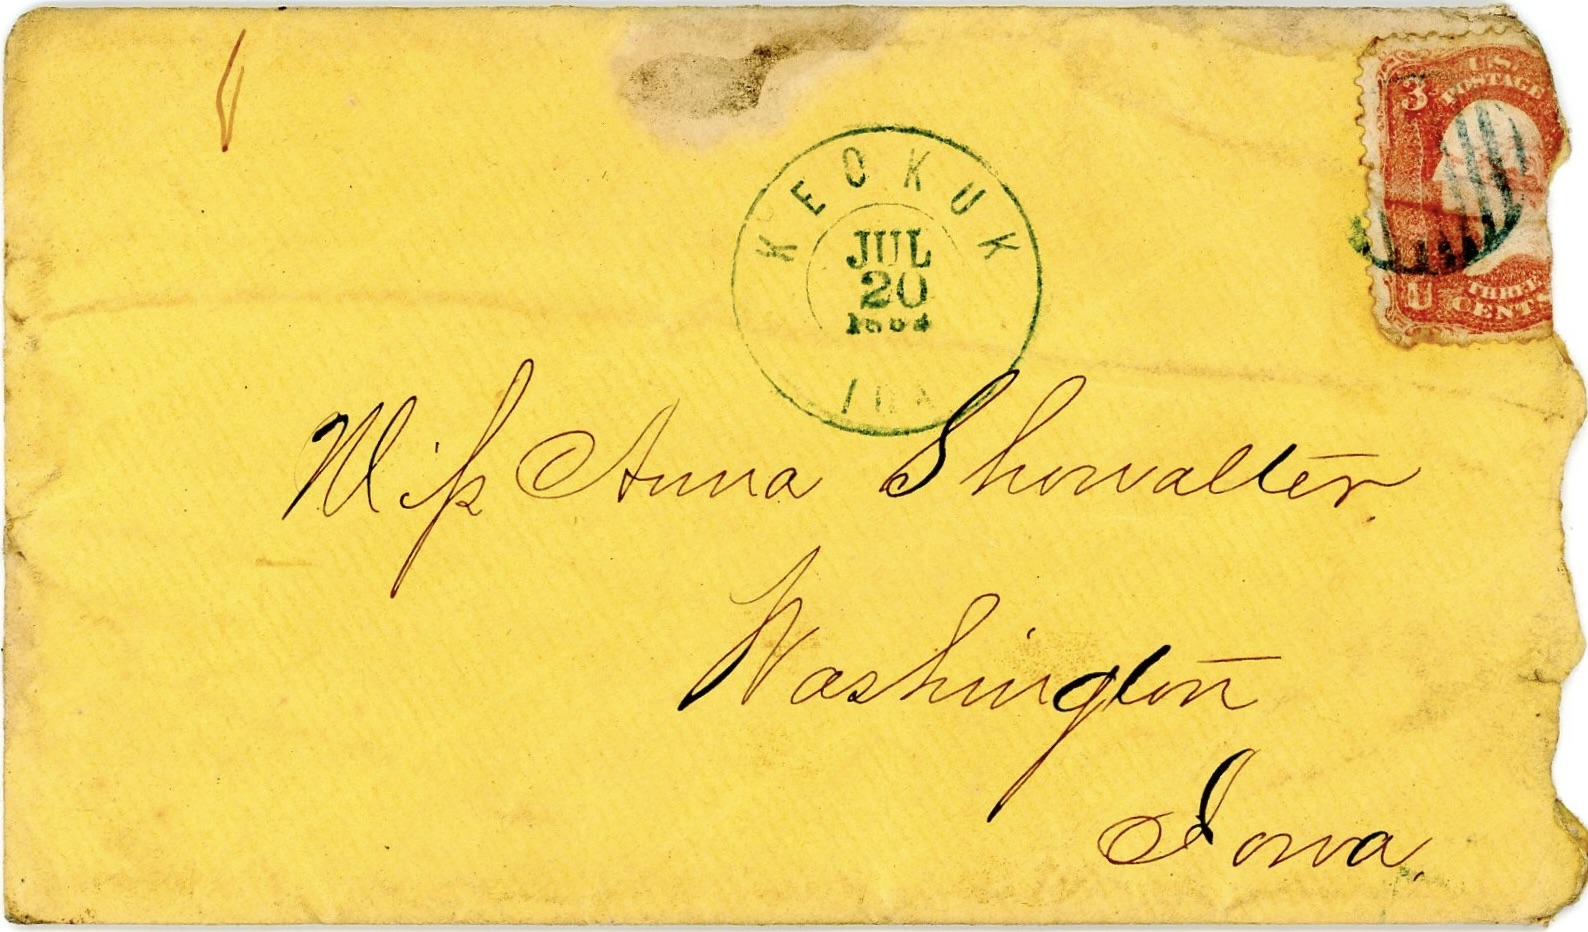 U.S.
POSTAGE
3
U
THREE
CENTS
KEOKUK
JUL
20
1864
IOA
Miſs Anna Showalter.
Washington
Iowa.